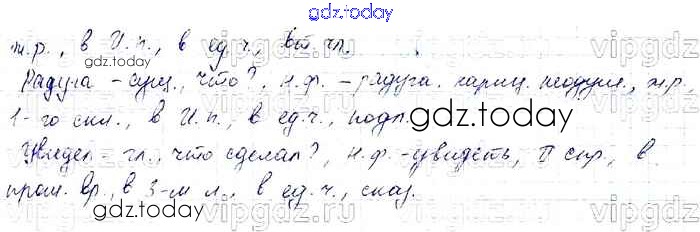 gdz.today
ж.р., в И.п., в ед.ч., вт. чл.
gdz.today
Радуга – сущ., что?, н.ф. – радуга. нариц. неодуш., ж.р.,
1-го скл., в И.п., в ед.ч., подл.
gdz.today
Увидел – гл., что сделал?, н.ф. – увидеть, II спр., в
прош. вр., в 3-м л., в ед.ч., сказ.
gdz.today
vipgdz.ru